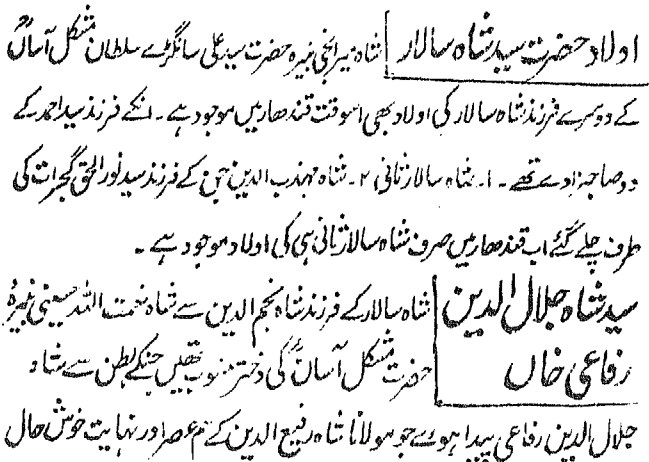 اولاد حضرت سید شاہ سالار
شاہ میراجی نبیرہ حضرت سید علی سانگڑے سلطان مشکل آساںؒ
کے دوسرے فرزند شاہ سالار کی اولاد بھی اسوقت قندھار میں موجود ہے ۔ انکے فرزند سید احمد کے
دو صاحبزادے تھے ۔ ۱۔ شاہ سالار ثانی ۲۔ شاہ مہذب الدین جن کے فرزند سید نور الحق گجرات کی
طرف چلے گئے اب قندھار میں صرف شاہ سالار ثانی ہی کی اولاد موجود ہے ۔
سید شاہ جلال الدین
رفاعی خاں
شاہ سالار کے فرزند شاہ نجم الدین سے شاہ نعمت اللہ حسینی نبیرۂ
حضرت مشکل آسانؒ کی دختر منسوب تھیں جنکے بطن سے شاہ
جلال الدین رفاعی پیدا ہوے جو مولانا شاہ رفیع الدین کے ہم عصر اور نہایت خوش حال